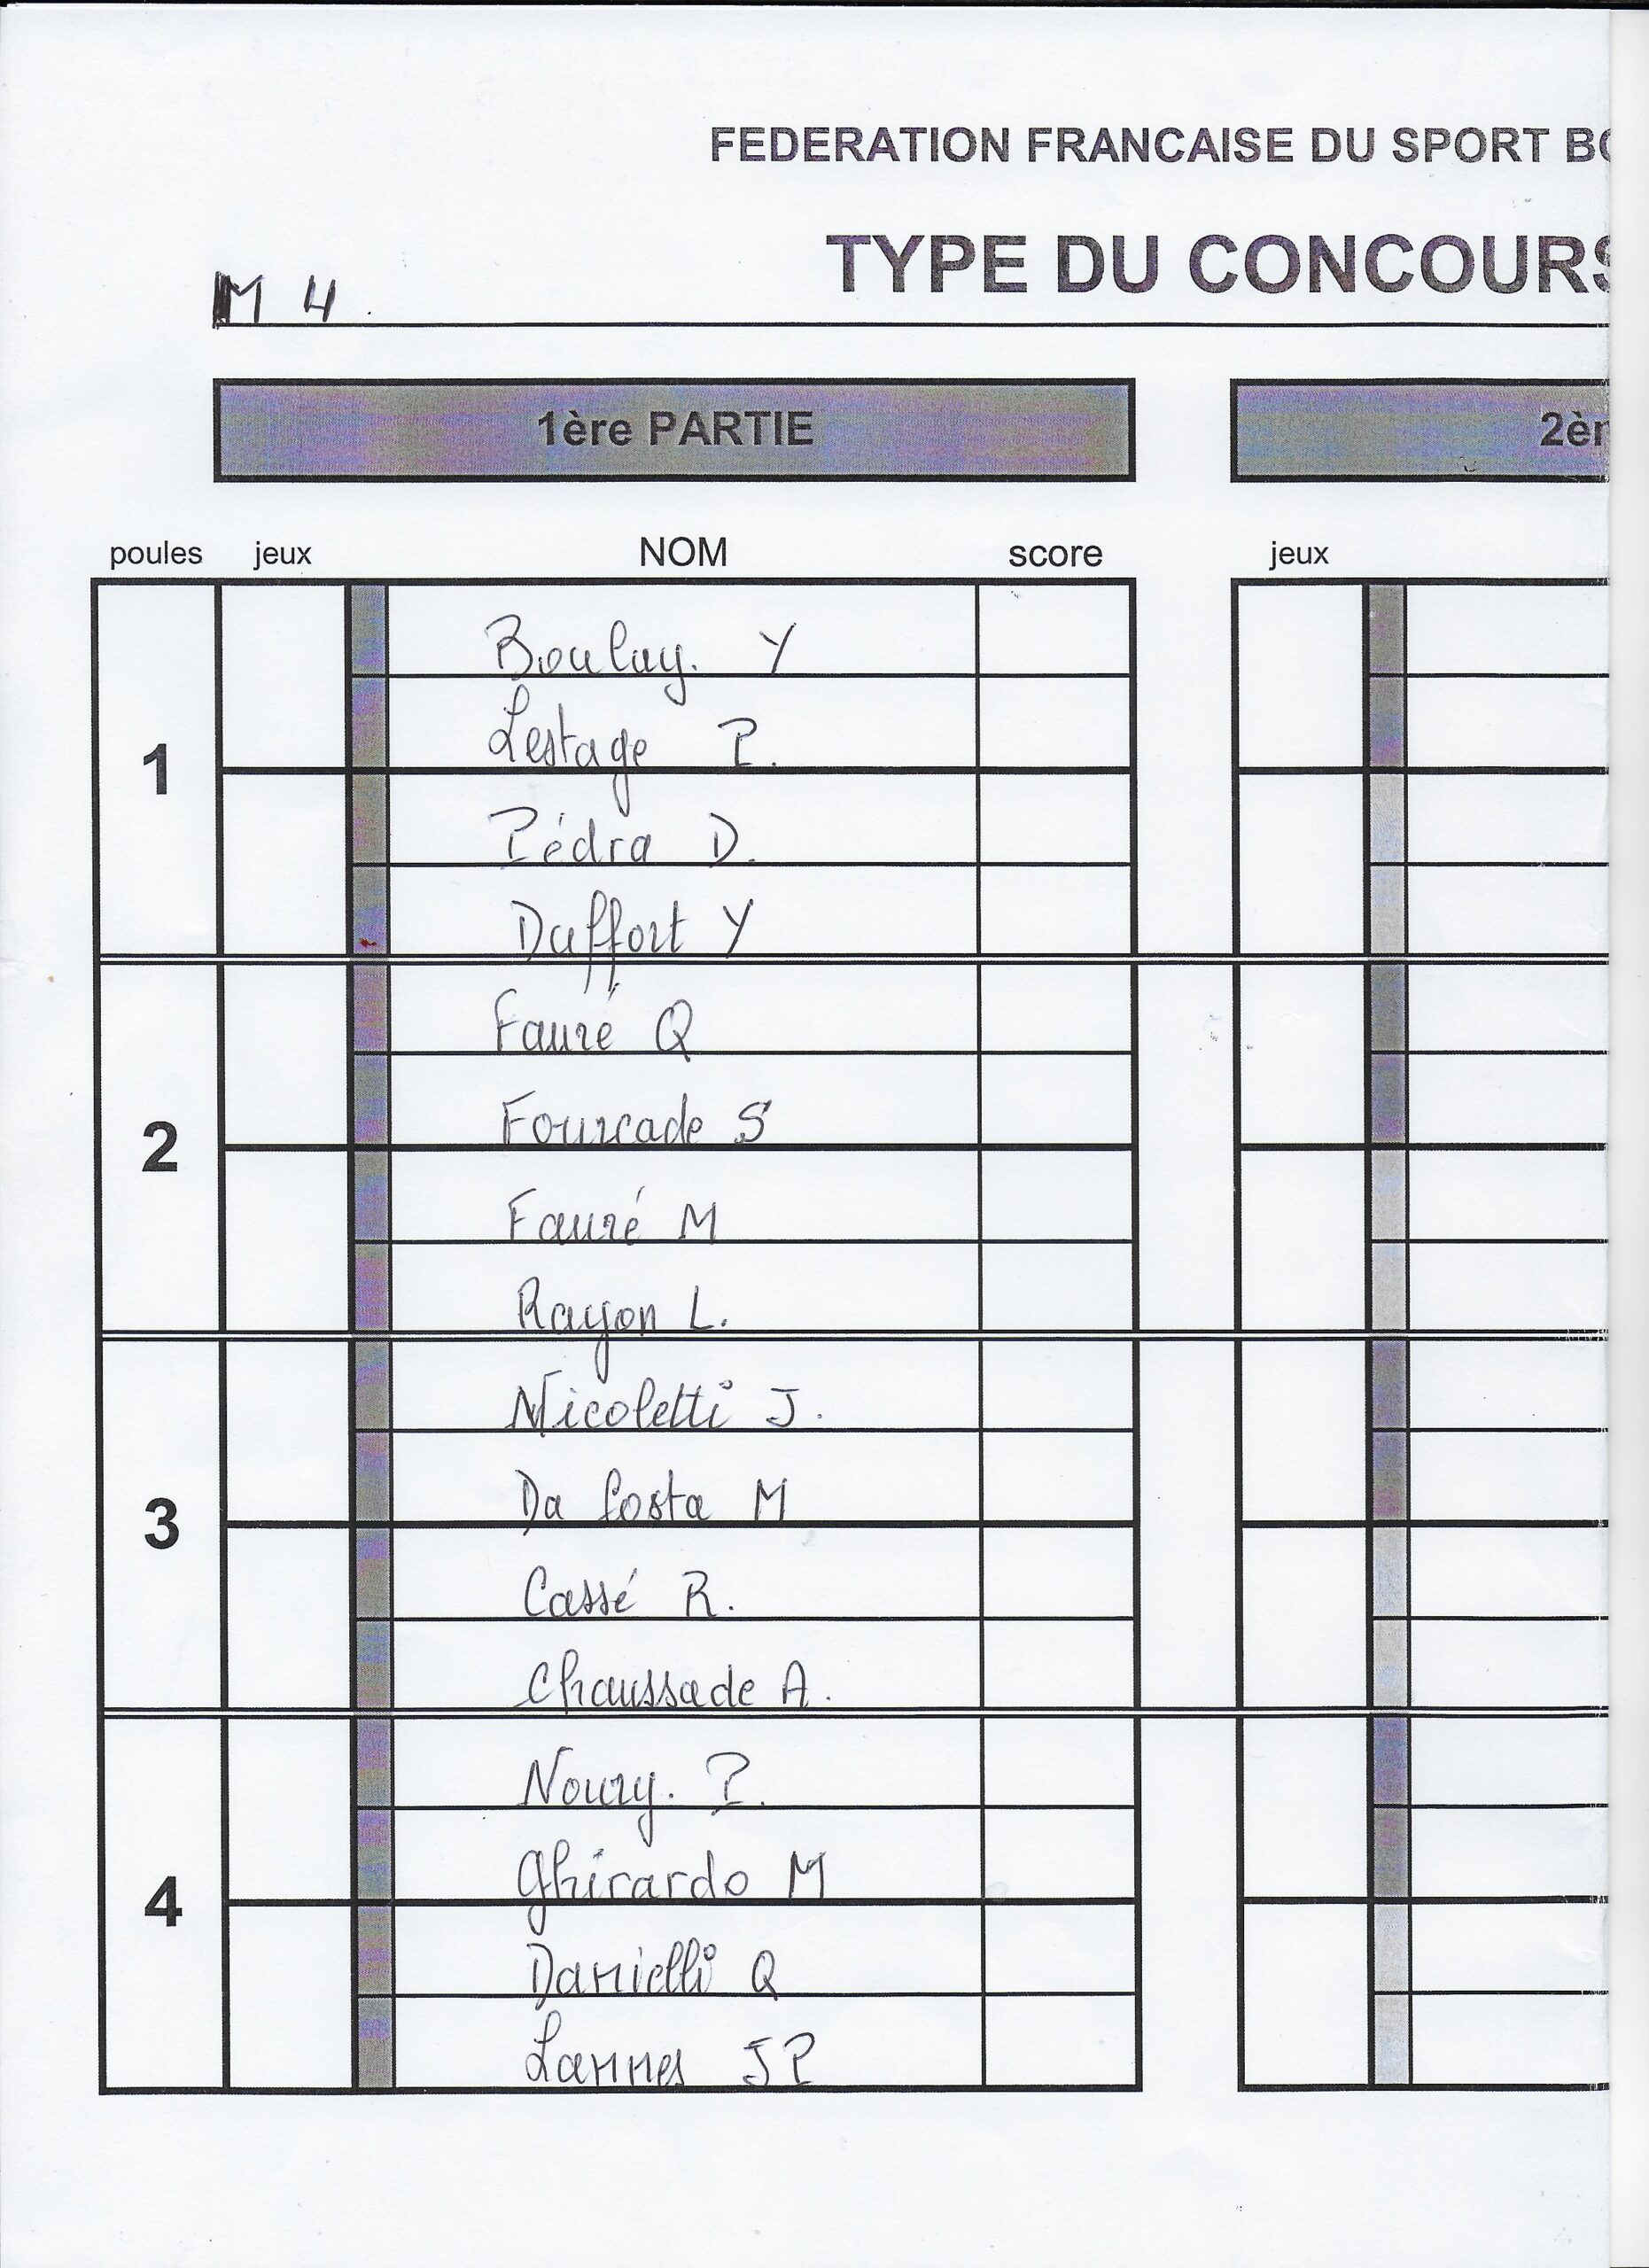 FEDERATION FRANCAISE DU SPORT
TYPE DU CONCOURS
M 4.
1ère PARTIE
poules jeux NOM score jeux
1
Boulay. Y
Lestage P.
Pédra D.
Duffort Y
2
Fauré Q
Fourcade S
Fauré M
Rayon L.
3
Nicoletti J.
Da Costa M
Cassé R.
Chaussade A.
4
Noury. P.
Ghirardo M
Danielli Q
Lannes JP